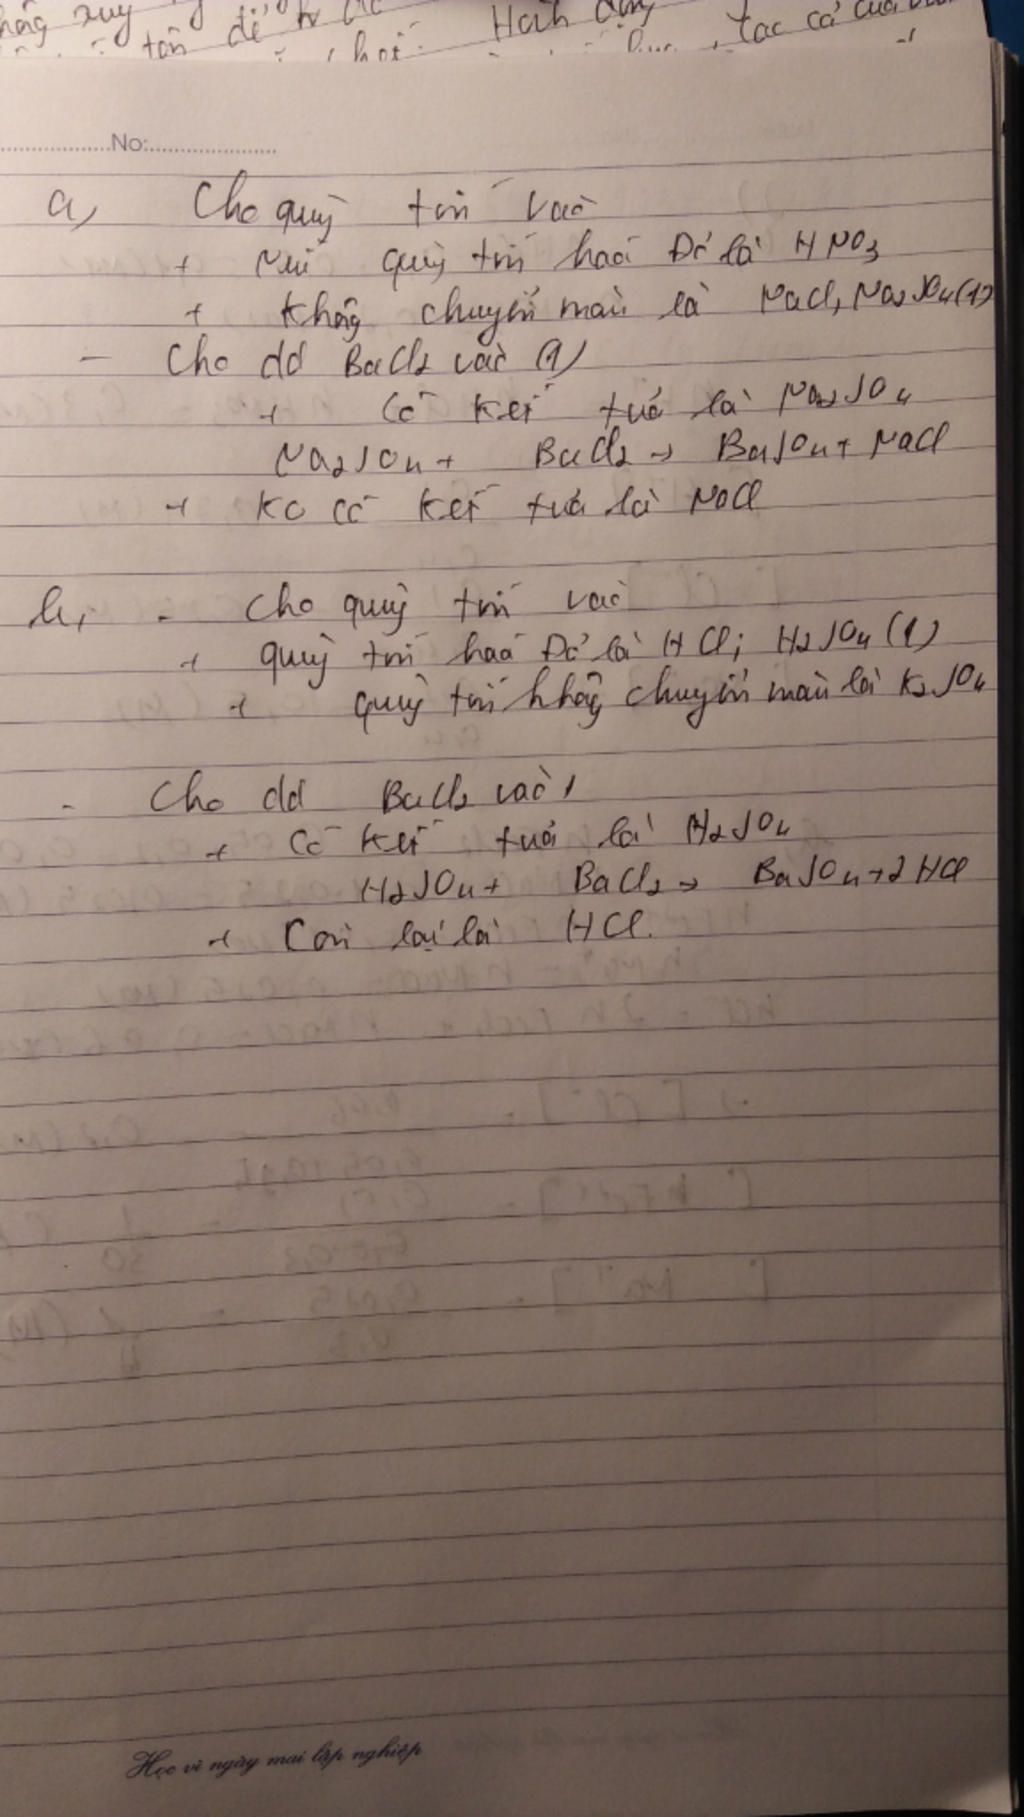 hông xuy
tôn để
Hành động
tác cả của
No:
a, Cho quỳ tím vào
+ Nếu quỳ tím hoá Đỏ là HNO3
+ Không chuyển màu là NaCl, Na2SO4 (1)
- Cho dd BaCl2 vào (1)
+ Có kết tủa là Na2SO4
Na2SO4 + BaCl2 → BaSO4 + NaCl
+ Ko có kết tủa là NaCl
b, - Cho quỳ tím vào
+ quỳ tím hoá Đỏ là HCl; H2SO4 (1)
+ quỳ tím không chuyển màu là K2SO4
- Cho dd BaCl2 vào 1
+ Có kết tủa là H2SO4
H2SO4 + BaCl2 → BaSO4 + 2HCl
+ Còn lại là HCl.
Học vì ngày mai lập nghiệp